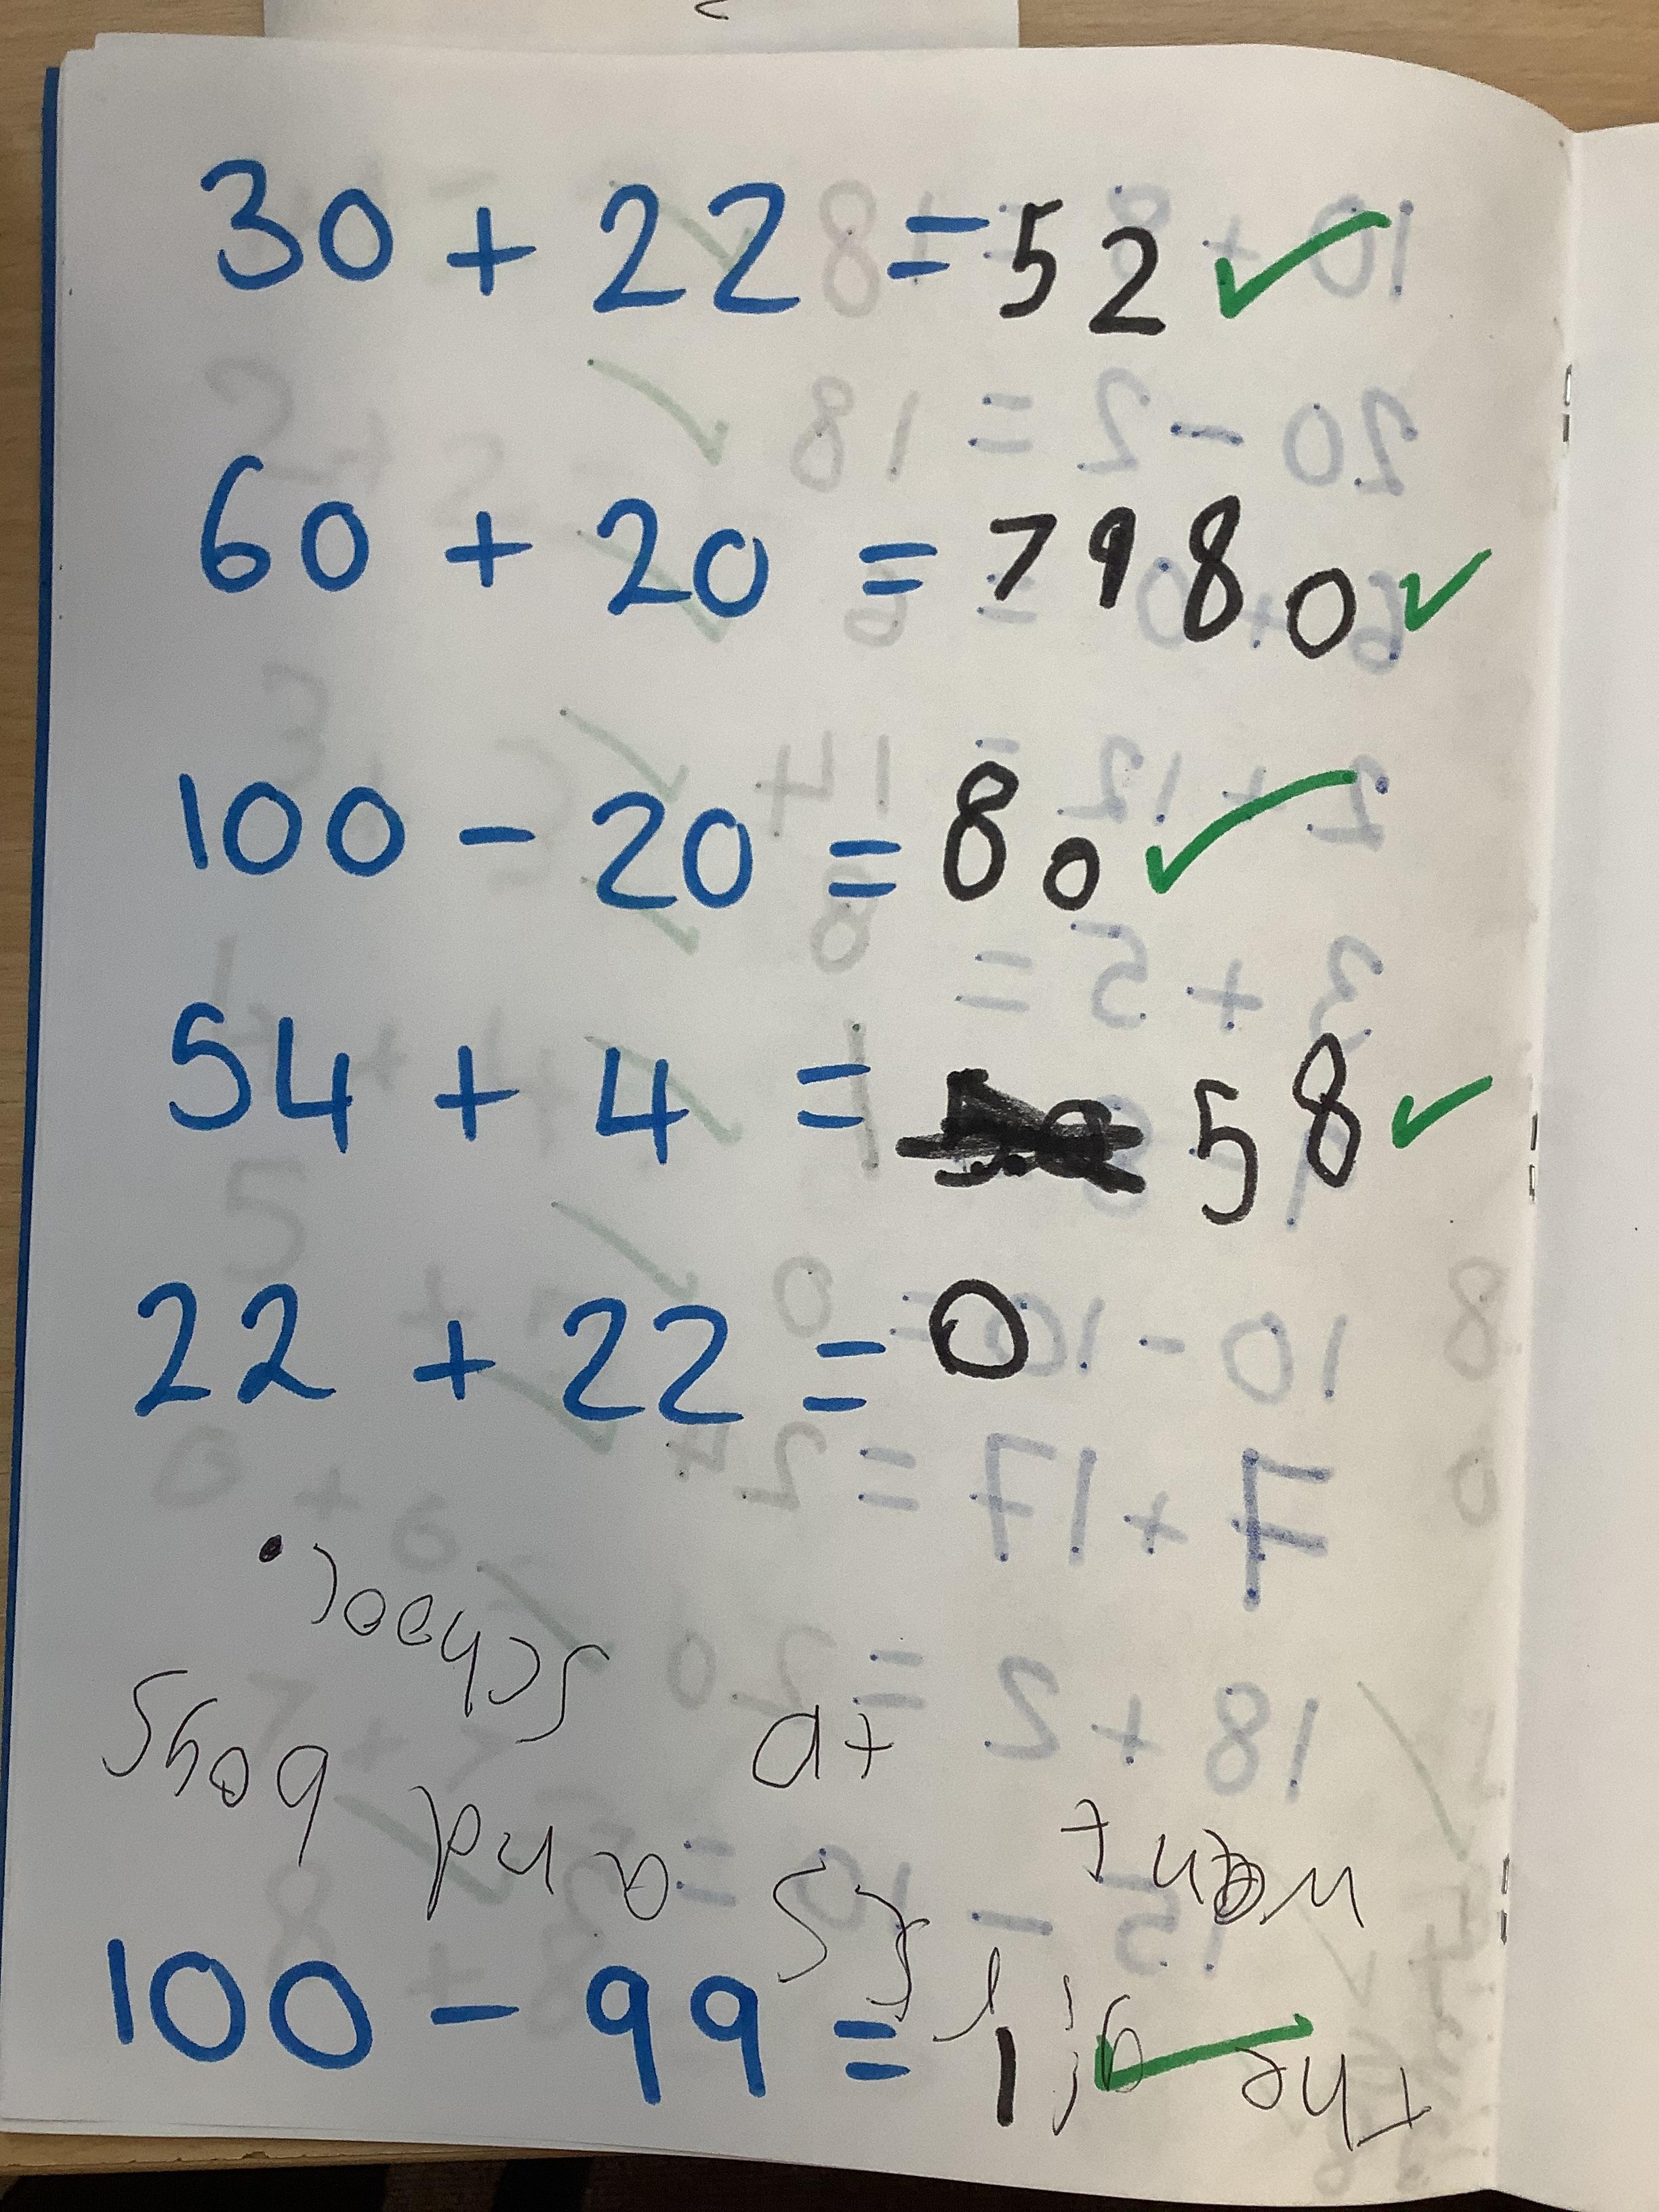 30 + 22 = 52
60 + 20 = 79 80
100 - 20 = 80
54 + 4 = 58
22 + 22 = 0
100 - 99 = 1
the girls and boys
went to school.